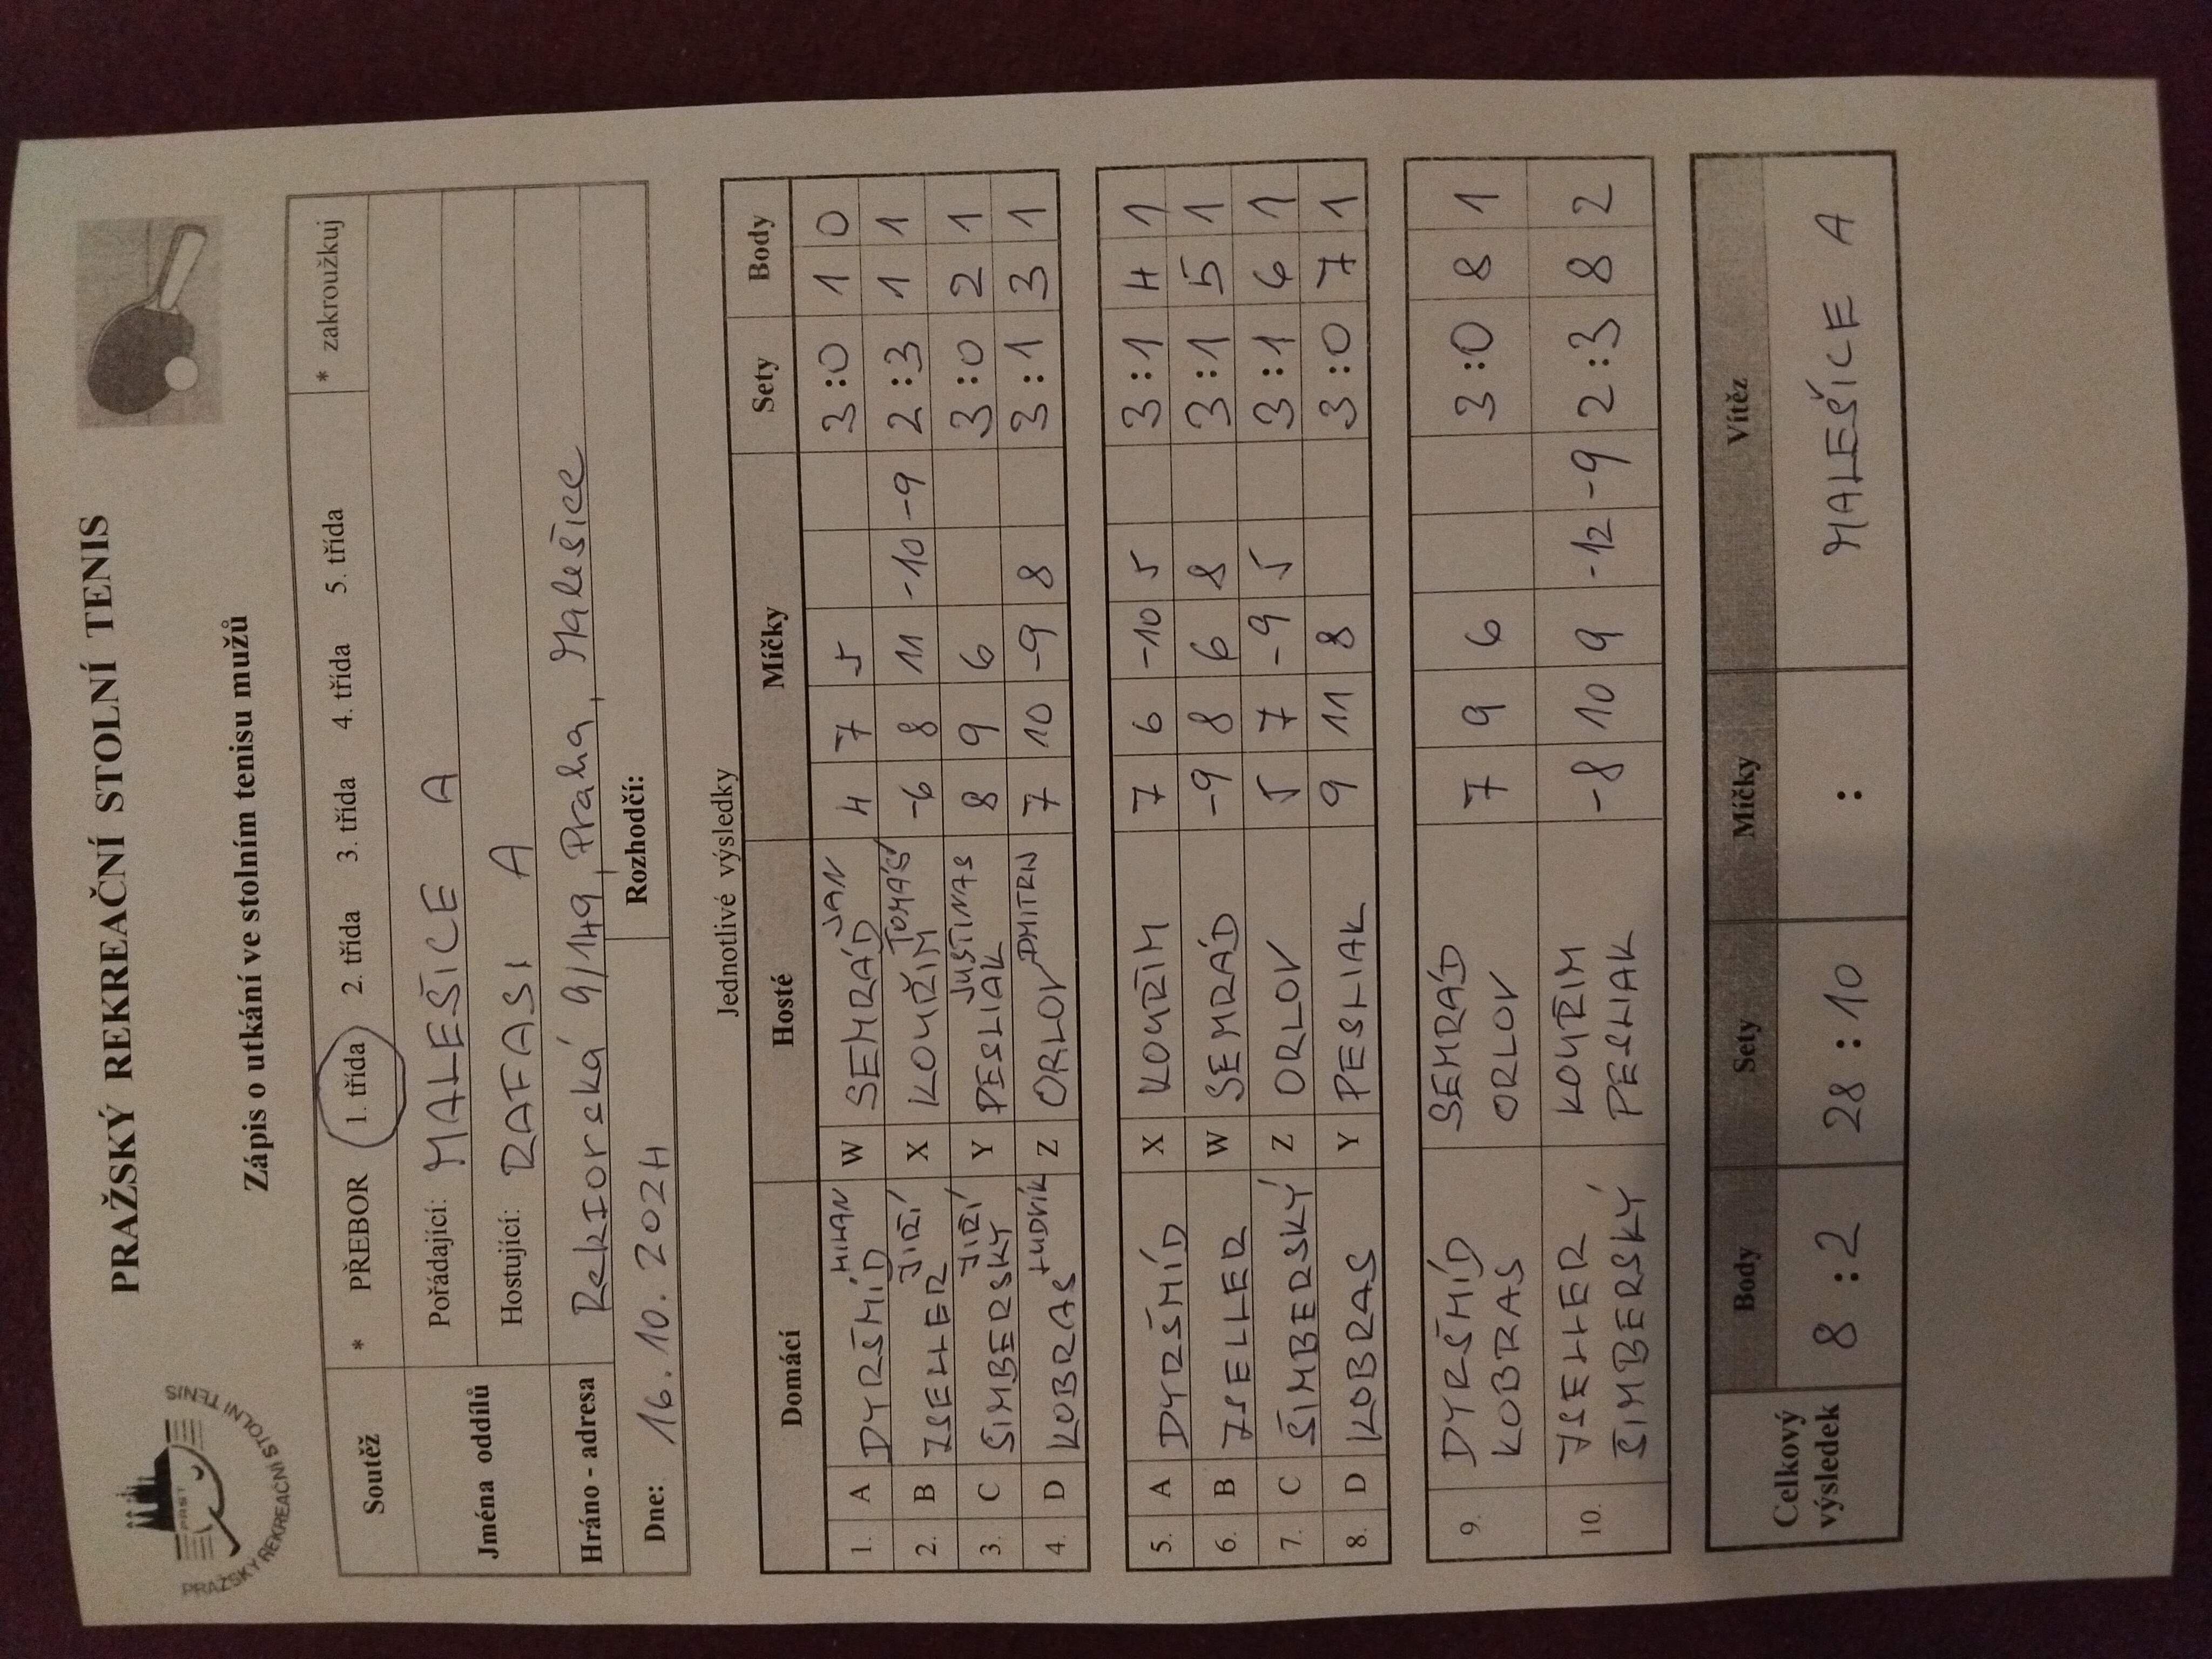 PRAŽSKÝ REKREAČNÍ STOLNÍ TENIS
PRAŽSKÝ REKREAČNÍ STOLNÍ TENIS
PRST
Zápis o utkání ve stolním tenisu mužů
Soutěž * PŘEBOR 1. třída 2. třída 3. třída 4. třída 5. třída * zakroužkuj
Jména oddílů Pořádající: MALEŠICE A
Hostující: RAFASI A
Hráno - adresa Rektorská 9/149, Praha, Malešice
Dne: 16. 10. 2024 Rozhodčí:
Jednotlivé výsledky
Domácí Hosté Míčky Sety Body
1. A DYRŠMÍD MILAN W SEMRÁD JAN 4 7 5 3:0 1 0
2. B ZSELLER JIŘÍ X KOUŘIM TOMÁŠ -6 8 11 -10 -9 2:3 1 1
3. C ŠIMBERSKÝ JIŘÍ Y PESLIAK JUSTINAS 8 9 6 3:0 2 1
4. D KOBRAS LUDVÍK Z ORLOV DMITRIJ 7 10 -9 8 3:1 3 1
5. A DYRŠMÍD X KOUŘIM 7 6 -10 5 3:1 4 1
6. B ZSELLER W SEMRÁD -9 8 6 8 3:1 5 1
7. C ŠIMBERSKÝ Z ORLOV 5 7 -9 5 3:1 6 1
8. D KOBRAS Y PESLIAK 9 11 8 3:0 7 1
9. DYRŠMÍD SEMRÁD 7 9 6 3:0 8 1
KOBRAS ORLOV
10. ZSELLER KOUŘIM -8 10 9 -12 -9 2:3 8 2
ŠIMBERSKÝ PESLIAK
Celkový výsledek Body Sety Míčky Vítěz
8:2 28:10 : MALEŠICE A